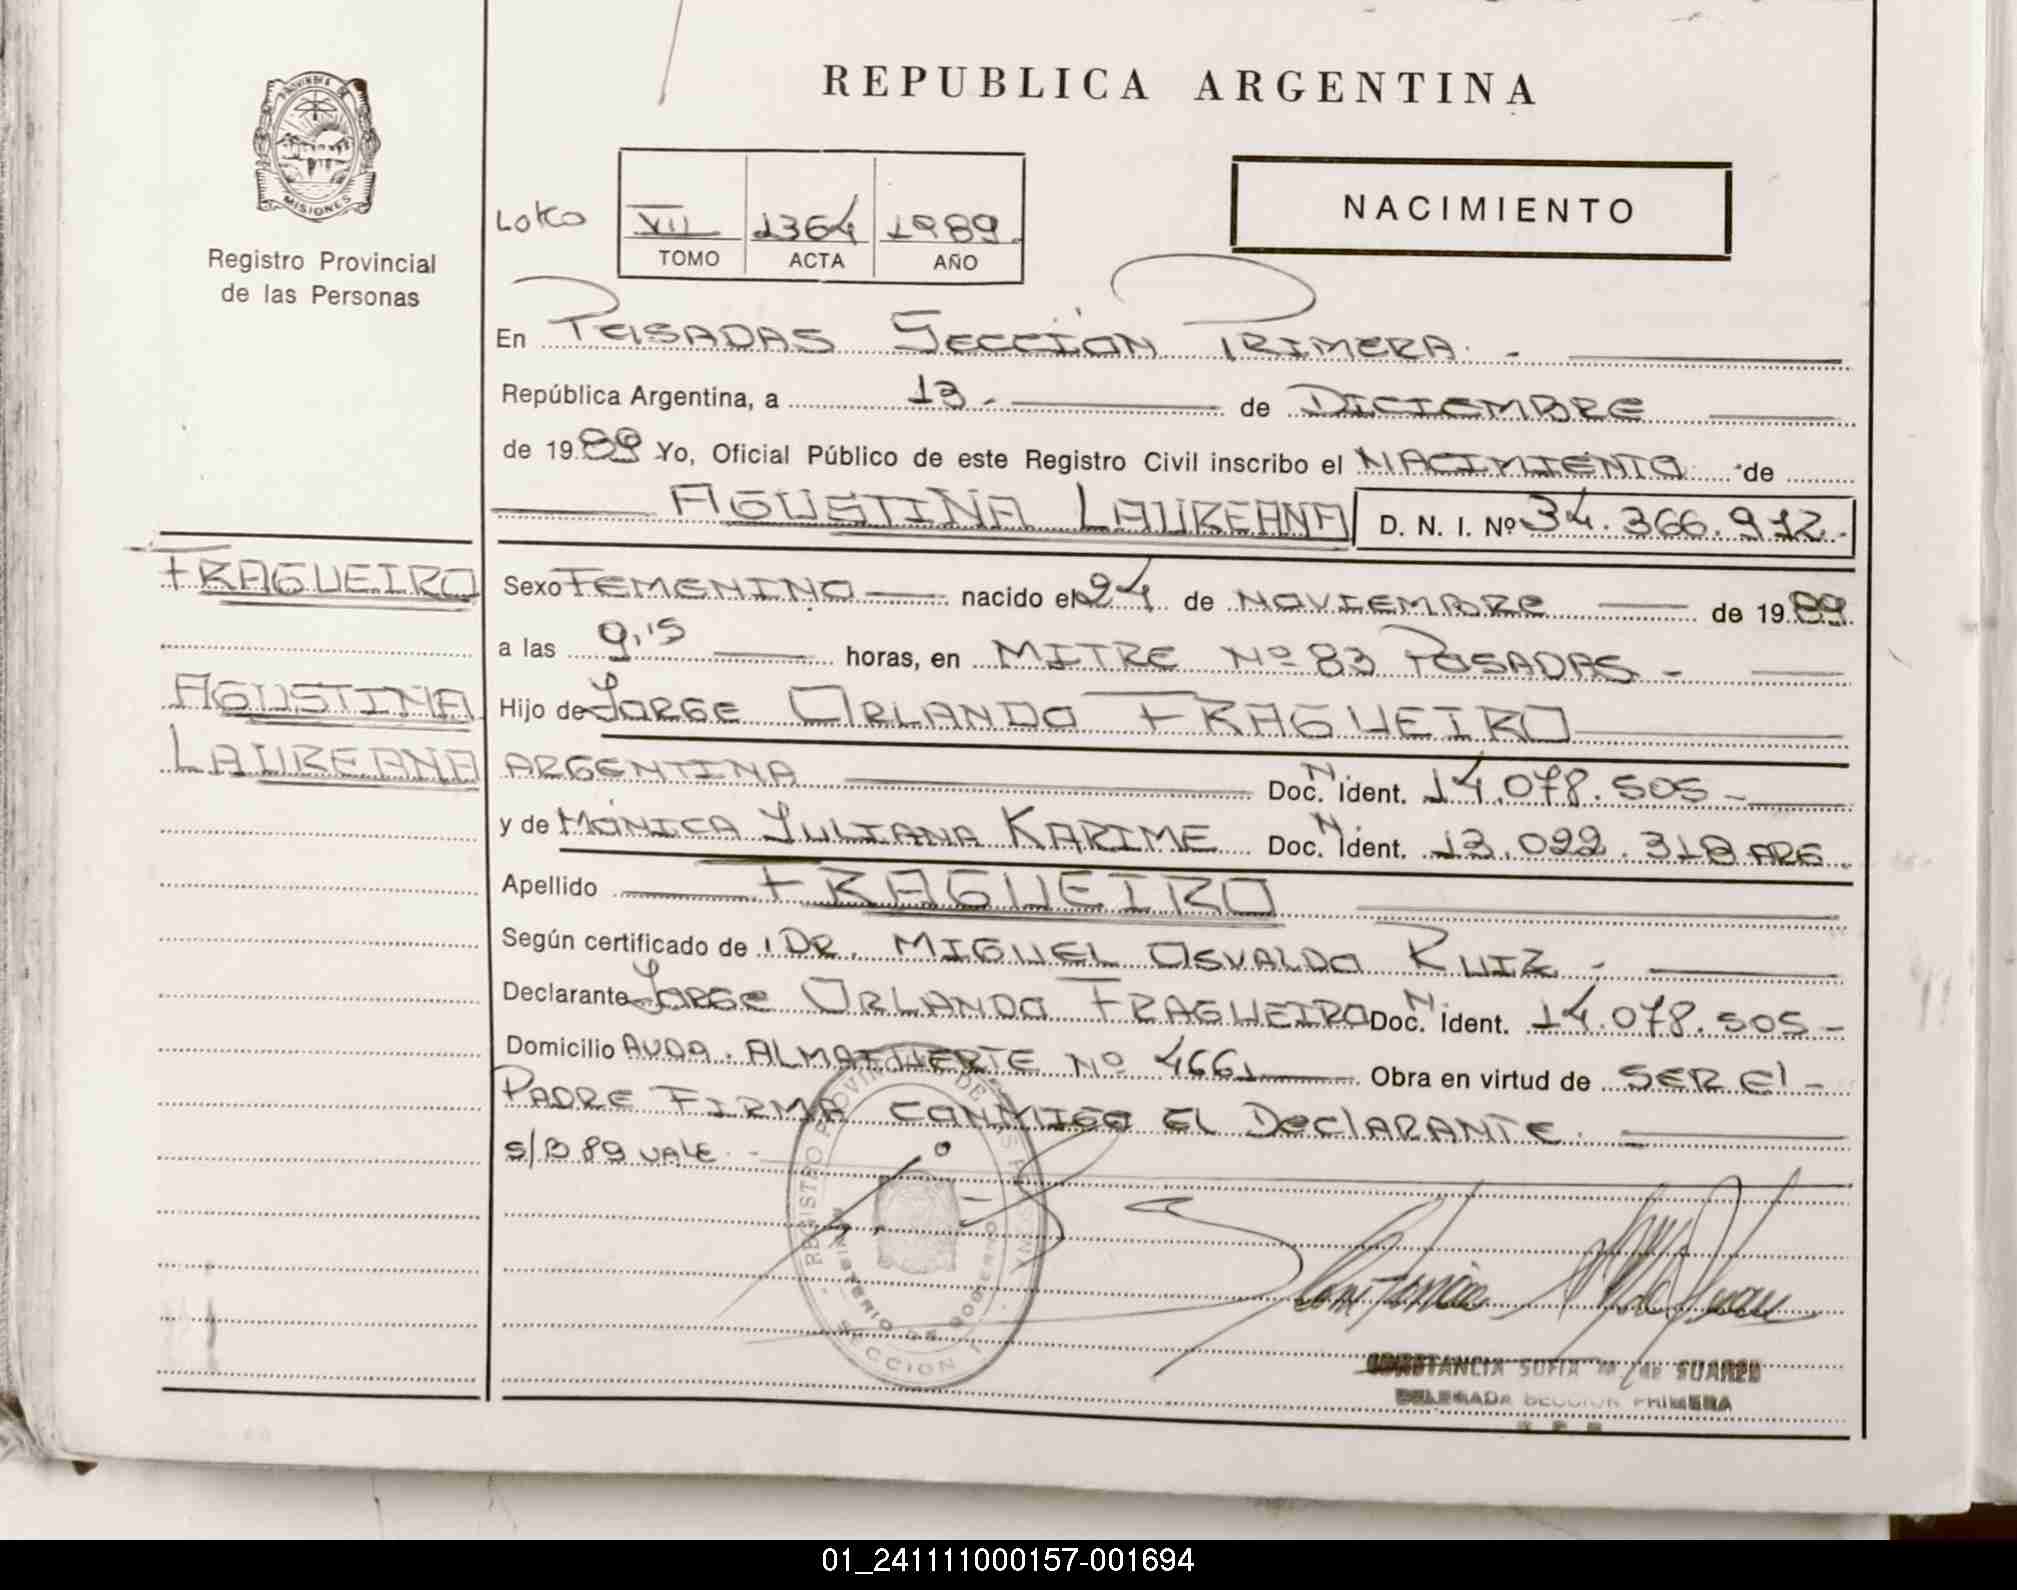 REPUBLICA ARGENTINA
PROVINCIA DE
MISIONES
Registro Provincial
de las Personas
NACIMIENTO
VII 1364 1989.
TOMO ACTA AÑO
En POSADAS SECCION PRIMERA. -
República Argentina, a 13.- de DICIEMBRE
de 1989 Yo, Oficial Público de este Registro Civil inscribo el NACIMIENTO de
AGUSTINA LAUREANA D. N. I. Nº 34.366.912.-
FRAGUEIRO
AGUSTINA
LAUREANA
Sexo FEMENINO nacido el 24 de NOVIEMBRE de 1989.
a las 9,15 horas, en MITRE Nº 83 POSADAS -
Hijo de JORGE ORLANDO FRAGUEIRO
ARGENTINA Doc. N. Ident. 14.078.505-
y de MONICA JULIANA KARIME Doc. N. Ident. 13.022.318 ARG.
Apellido FRAGUEIRO
Según certificado de DR. MIGUEL OSVALDO RUIZ -
Declarante JORGE ORLANDO FRAGUEIRO Doc. N. Ident. 14.078.505-
Domicilio AVDA. ALMAFUERTE Nº 466 Obra en virtud de SER El -
PADRE FIRMA CONMIGO EL DEClARANTE.
S/B 89 VALE.-
REGISTRO PROVINCIAL DE LAS PERSONAS
MINISTERIO DE GOBIERNO
SECCION 1
CONSTANCIA SOFIA M. DE SUAREZ
DELEGADA SECCION PRIMERA
01_241111000157-001694